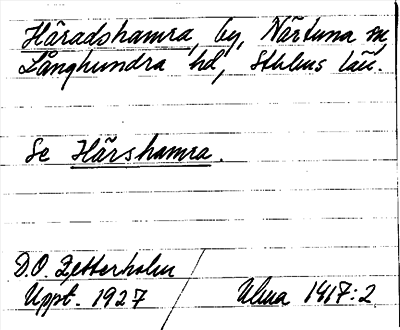 Häradshamra, by, Närtuna sn,
Långhundra hd, Sthlms län.
Se Härshamra.
D.O. Zetterholm
Uppt. 1927
Ulma 1417:2